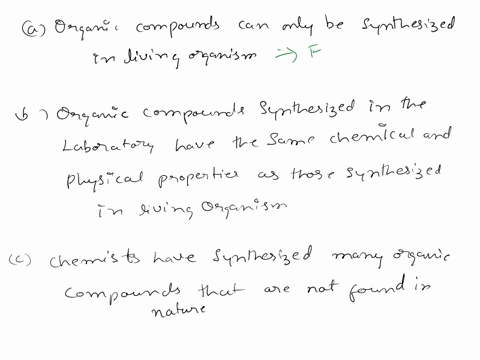 (a) Organic compounds can only be synthesized
in living organism → F
b) Organic compounds synthesized in the
Laboratory have the same chemical and
physical properties as those synthesized
in living organism
(c) chemists have synthesized many organic
compounds that are not found in
nature